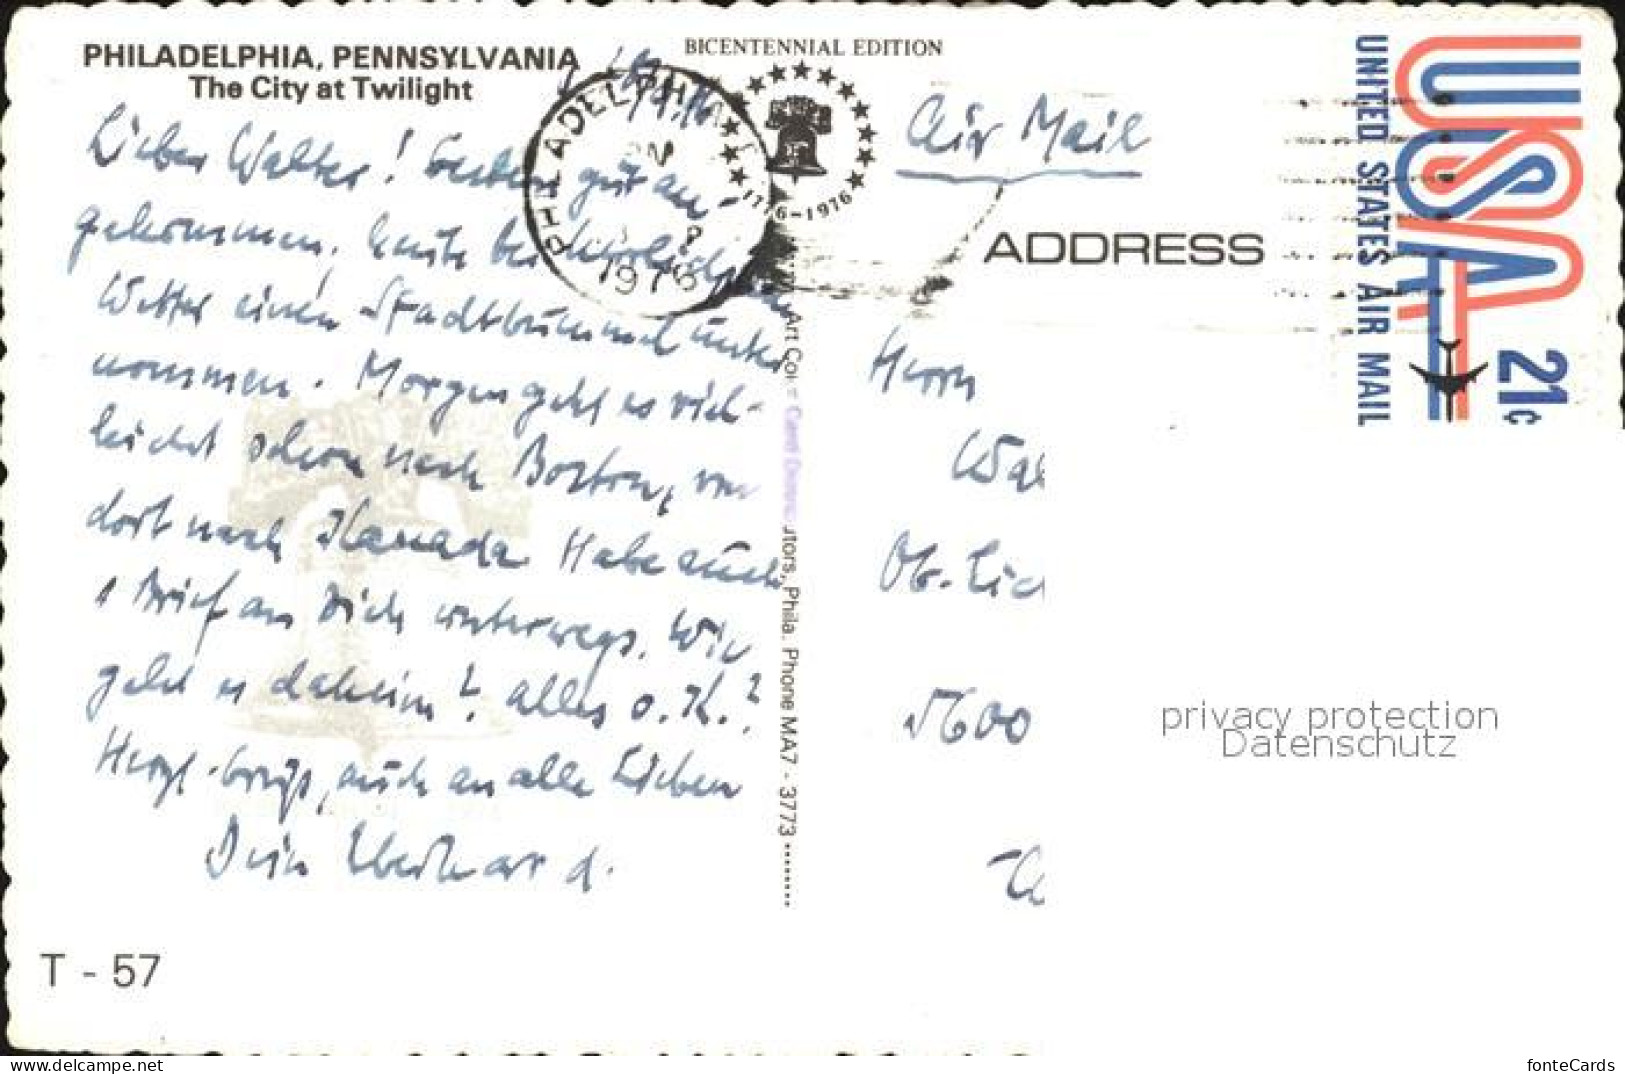 PHILADELPHIA, PENNSYLVANIA
The City at Twilight
BICENTENNIAL EDITION
PHILADELPHIA
1976
1776-1976
Air Mail
ADDRESS
USA
UNITED STATES AIR MAIL
21c
Lieber Walter! Gestern gut an-
gekommen, heute bei herrlichem
Wetter einen Stadtbummel unter
nommen. Morgen geht es viel-
leicht schon nach Boston, von
dort nach Kanada. Habe auch
1 Brief an Dich unterwegs. Wie
geht es daheim? Alles o.K.?
Herzl. auch an alle Lieben
Dein Eberhard.
Herrn
Ob.-Lic
5600
Art Co
Card Distributors, Phila. Phone MA7 - 3773
T - 57
privacy protection
Datenschutz
www.delcampe.net
fonteCards